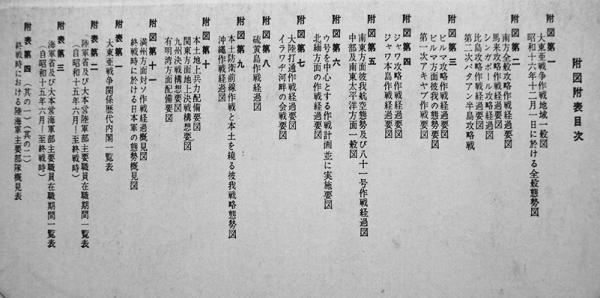 附図附表目次
附図第一
大東亜戦争作戦地域一般図
昭和十六年十二月一日に於ける全般態勢図
附図第二
南方全般攻略作戦経過要図
馬来攻略作戦経過要図
シンガポール攻略経過図
比島攻略作戦経過要図
第二次バタアン半島攻略戦
附図第三
ビルマ攻略作戦経過図
ビルマに於ける彼我の態勢要図
第一次アキヤブ作戦要図
附図第四
ジャワ攻略作戦経過図
ジャワ本島作戦経過図
附図第五
南東方面彼我航空態勢及び八十一号作戦経過図
中部、南東太平洋方面一般図
附図第六
ウ号を中心とする作戦計画並に実施要図
北緬方面の作戦経過図
附図第七
大陸打通作戦経過要図
イラワヂ河畔の会戦要図
附図第八
硫黄島作戦経過図
附図第九
本土防衛前縁作戦と本土を繞る彼我戦略態勢図
沖縄作戦経過図
附図第十
本土地上兵力配備図
関東方面地上決戦構想要図
九州決戦構想要図
有明湾方面配備要図
満州方面対ソ作戦経過概見図
終戦時に於ける日本軍の態勢概見図
附表第一
大東亜戦争関係歴代内閣一覧表
附表第二
陸軍省及び大本営陸軍部主要職員在職期間一覧表
(自昭和十五年六月―至終戦時)
附表第三
海軍省及び大本営海軍部主要職員在職期間一覧表
(自昭和十五年六月―至終戦時)
附表第四 (其の一)(其の二)
終戦時における陸海軍主要部隊概見表